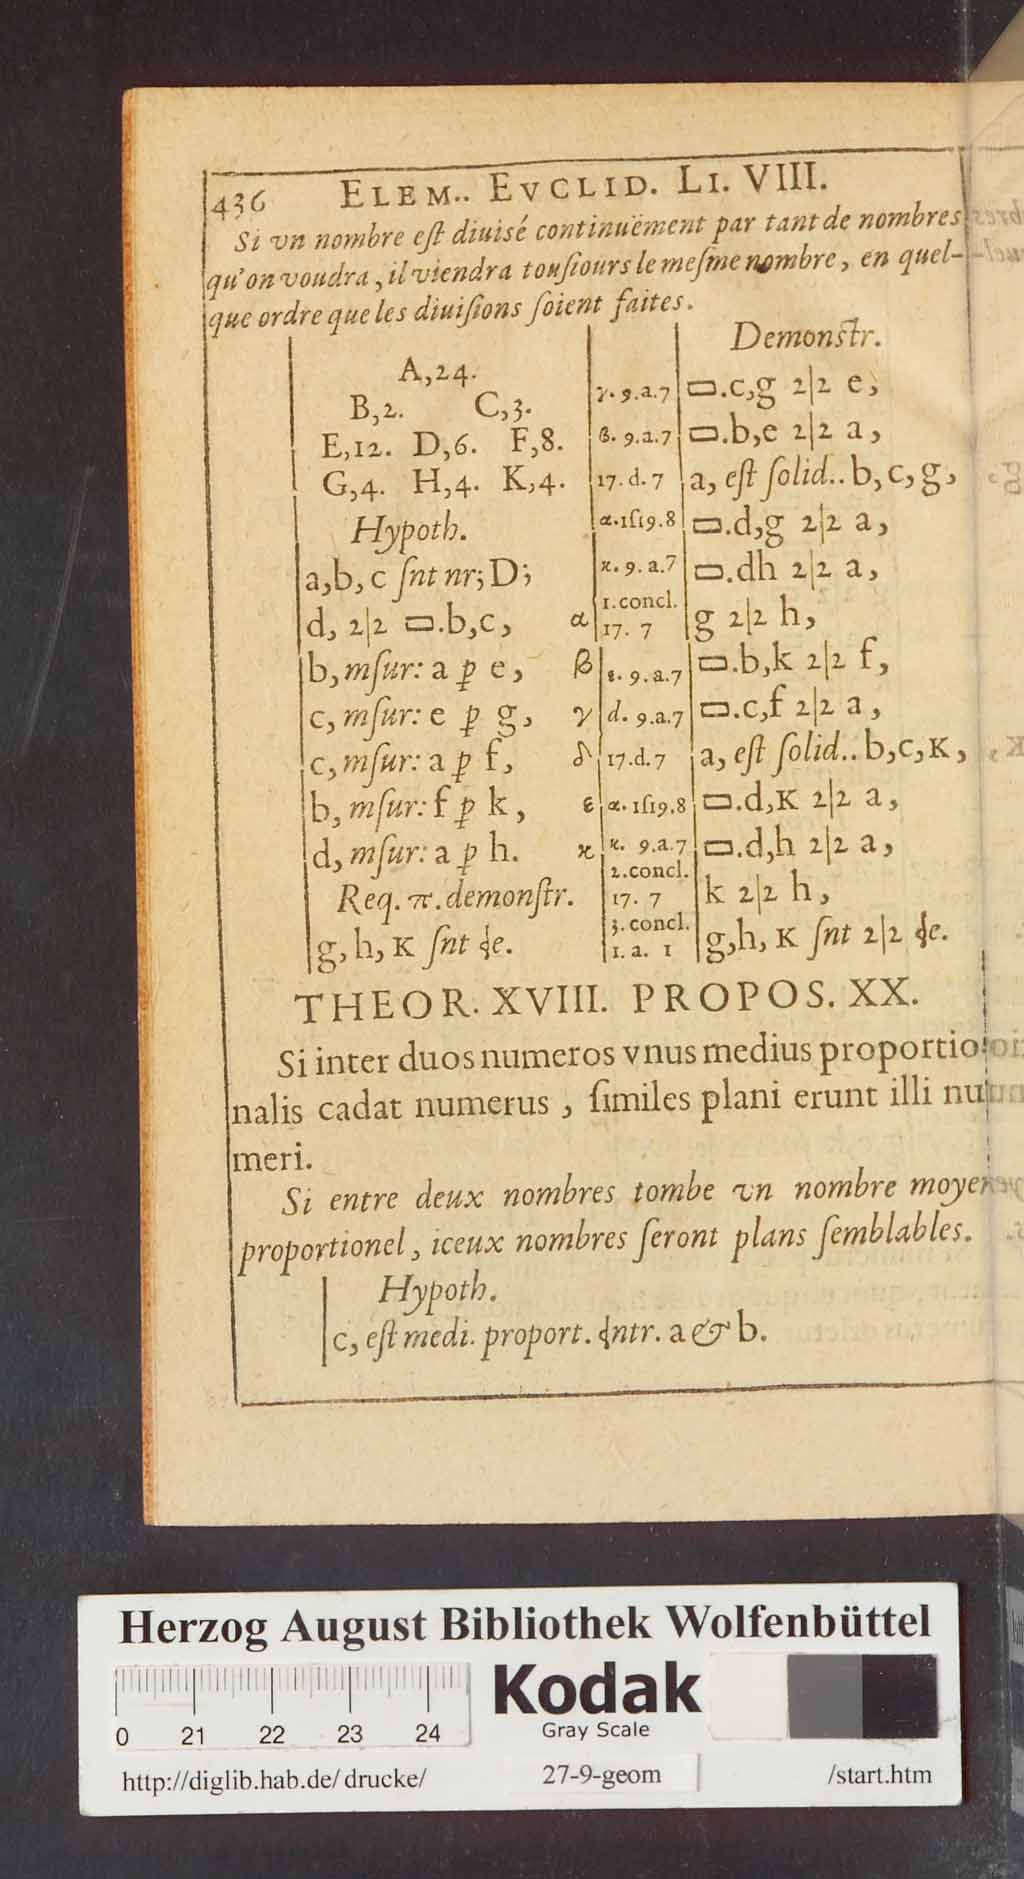 436 ELEM.. EVCLID. LI. VIII.
Si vn nombre eſt diuisé continuëment par tant de nombres
qu'on voudra, il viendra touſiours le meſme nombre, en quel-
que ordre que les diuiſions ſoient faites.
A,24.
B,2. C,3.
E,12. D,6. F,8.
G,4. H,4. K,4.
Hypoth.
a,b, c ſnt nr; D;
d, 2|2 ▭.b,c, α
b, mſur: a ꝑ e, β
c, mſur: e ꝑ g, γ
c, mſur: a ꝑ f, δ
b, mſur: f ꝑ k, ε
d, mſur: a ꝑ h. ϰ
Req. π. demonſtr.
g, h, K ſnt
Demonſtr.
γ. 9.a.7 ▭.c,g 2|2 e,
β. 9.a.7 ▭.b,e 2|2 a,
17. d. 7 a, eſt ſolid.. b, c, g,
α.1ſ19.8 ▭.d,g 2|2 a,
ϰ. 9. a.7 ▭.dh 2|2 a,
1.concl.
17. 7 g 2|2 h,
ε. 9. a.7 ▭.b,k 2|2 f,
d. 9.a.7 ▭.c,f 2|2 a,
17.d.7 a, eſt ſolid.. b,c,K,
α. 1ſ19.8 ▭.d,K 2|2 a,
ϰ. 9.a.7 ▭.d,h 2|2 a,
2.concl.
17. 7 k 2|2 h,
3. concl.
1. a. 1 g,h, K ſnt 2|2
THEOR. XVIII. PROPOS. XX.
Si inter duos numeros vnus medius proportio-
nalis cadat numerus, ſimiles plani erunt illi nu-
meri.
Si entre deux nombres tombe vn nombre moyen
proportionel, iceux nombres ſeront plans ſemblables.
Hypoth.
c, eſt medi. proport. ntr. a & b.
Herzog August Bibliothek Wolfenbüttel
Kodak
Gray Scale
0 21 22 23 24
http://diglib.hab.de/drucke/ 27-9-geom /start.htm